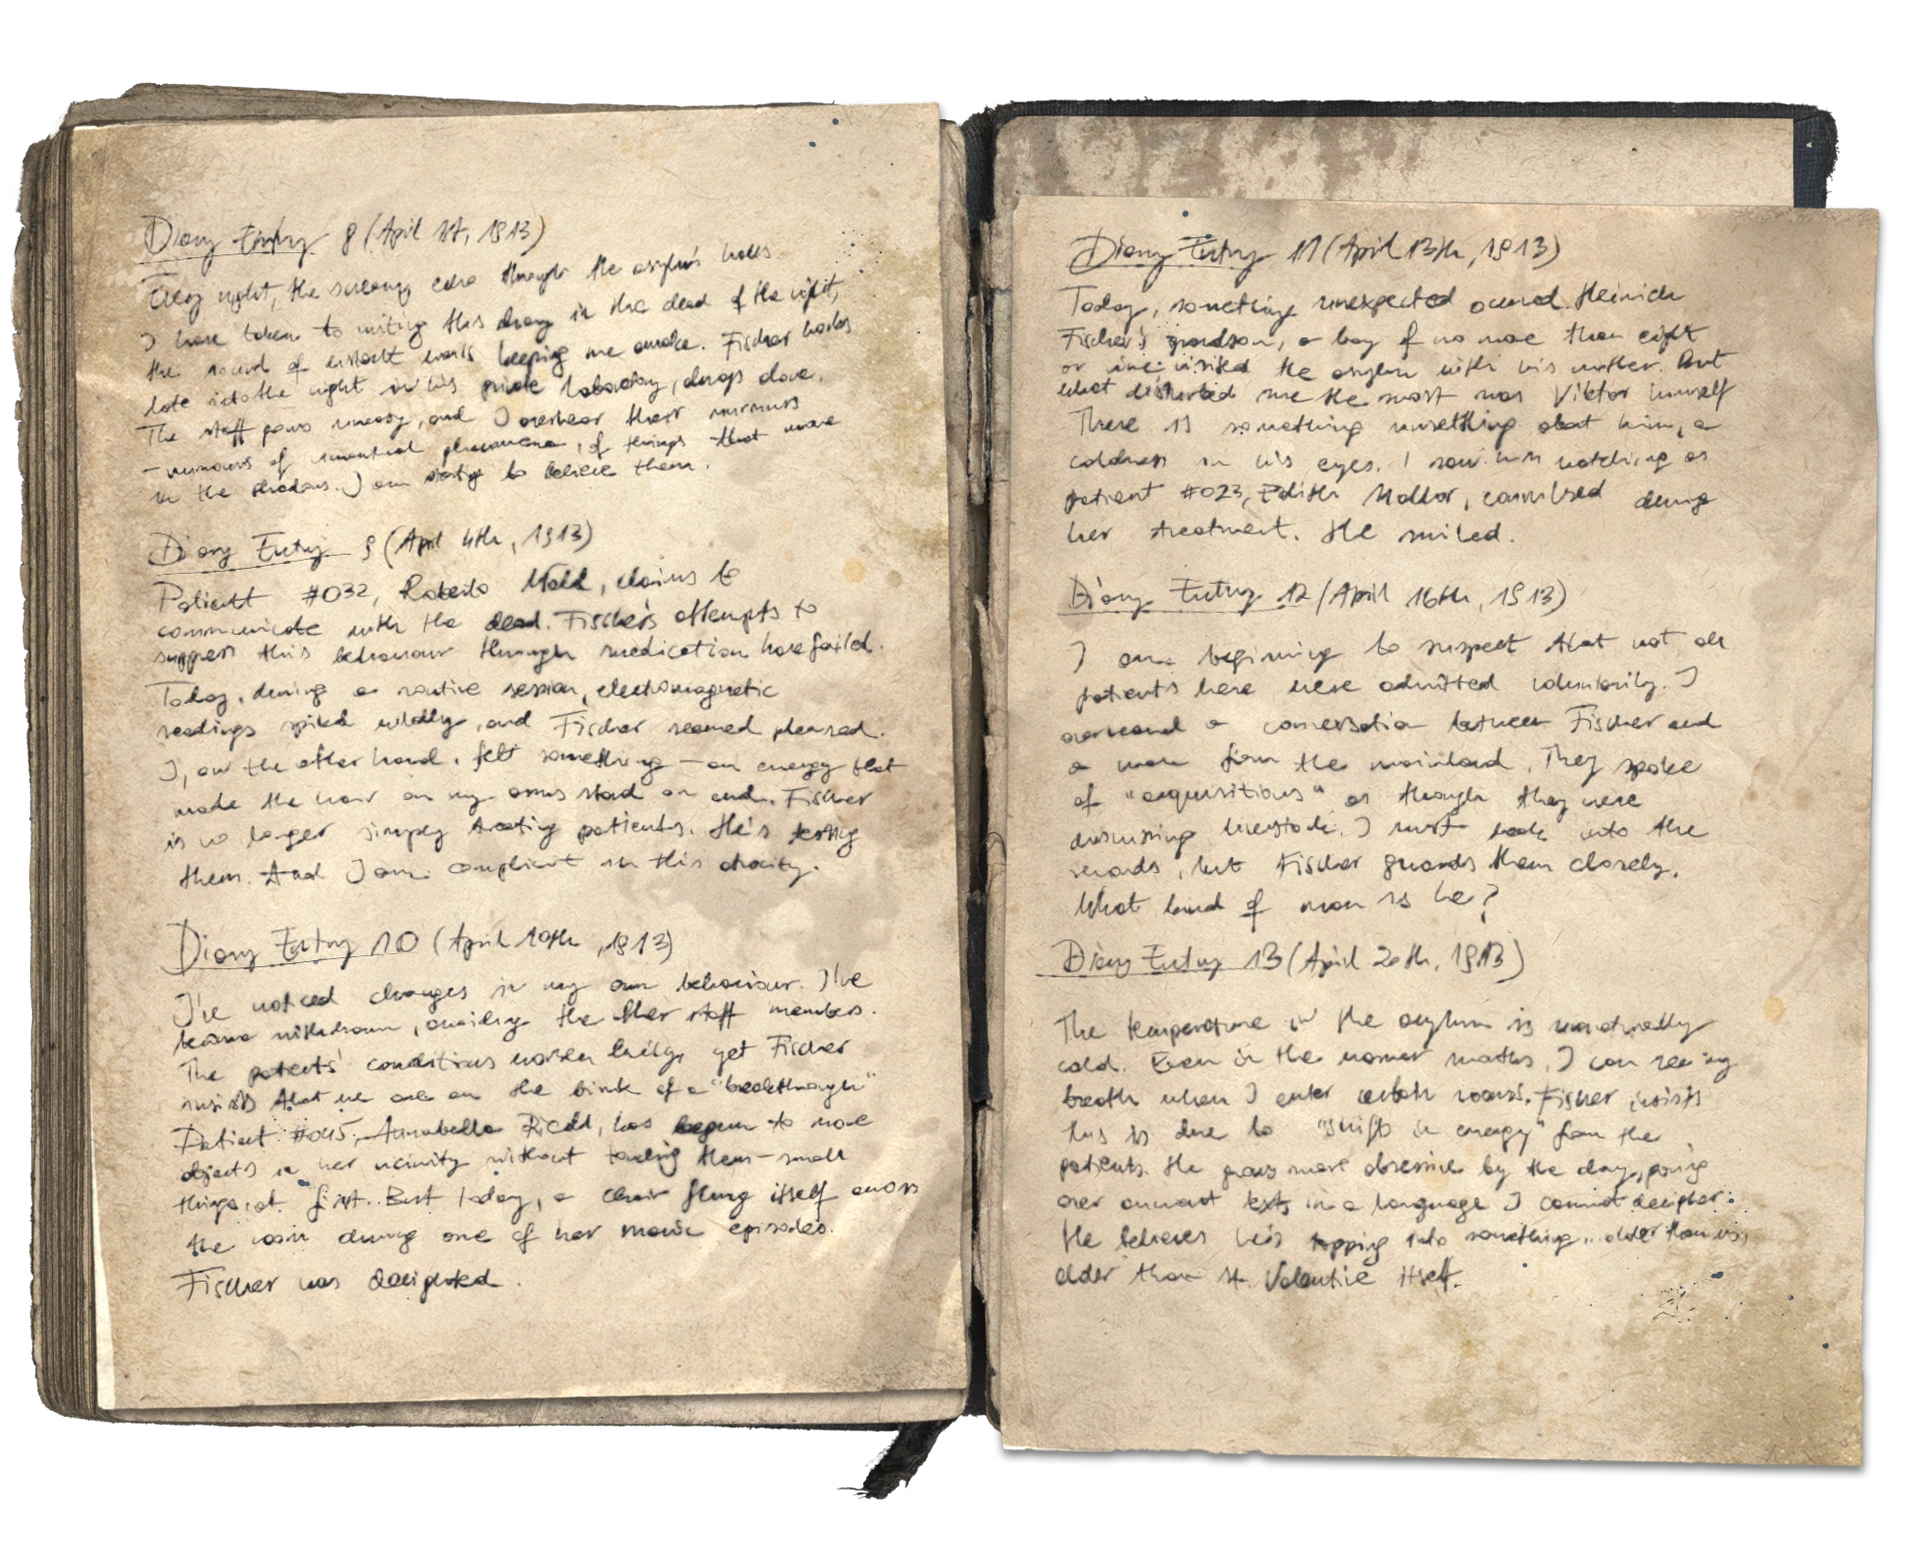 Diary Entry 8 (April 1st, 1913)
Every night, the screams echo through the asylum's halls.
I have taken to writing this diary in the dead of the night,
the sound of distant wails keeping me awake. Fischer works
late into the night in his private laboratory, always alone.
The staff grows uneasy, and I overhear their murmurs
- rumours of unnatural phenomena, of things that move
in the shadows. I am starting to believe them.
Diary Entry 9 (April 4th, 1913)
Patient #032, Roberto, claims to
communicate with the dead. Fischer's attempts to
suppress this behaviour through medication have failed.
Today, during a routine session, electromagnetic
readings spiked wildly, and Fischer seemed pleased.
I, on the other hand, felt something - an energy that
made the hair on my arms stand on end. Fischer
is no longer simply treating patients. He's testing
them. And I am complicit in this atrocity.
Diary Entry 10 (April 10th, 1913)
I've noticed changes in my own behaviour. I've
become withdrawn, avoiding the other staff members.
The patients' conditions worsen daily, yet Fischer
insists that we are on the brink of a "breakthrough"
Patient #045, Annabella, has begun to move
objects in her vicinity without touching them - small
things, at first. But today, a chair flung itself across
the room during one of her manic episodes.
Fischer was delighted.
Diary Entry 11 (April 13th, 1913)
Today, something unexpected occured. Heinrich
Fischer's grandson, a boy of no more than eight
or nine visited the asylum with his mother. But
what disturbed me the most was Viktor himself
There is something unsettling about him, a
coldness in his eyes. I saw him watching as
patient #023, Edith, convulsed during
her treatment. He smiled.
Diary Entry 12 (April 16th, 1913)
I am beginning to suspect that not all
patients here were admitted voluntarily. I
overheard a conversation between Fischer and
a man from the mainland. They spoke
of "acquisitions" as though they were
discussing livestock. I must look into the
records, but Fischer guards them closely.
What kind of man is he?
Diary Entry 13 (April 20th, 1913)
The temperature in the asylum is unnaturally
cold. Even in the warmer months, I can see my
breath when I enter certain rooms. Fischer insists
this is due to "shifts in energy" from the
patients. He grows more obsessive by the day, poring
over ancient texts in a language I cannot decipher.
He believes he's tapping into something... older than us,
older than St. Valentine itself.